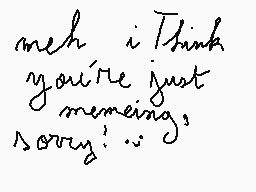 meh i Think
you're just
memeing,
sorry! :)